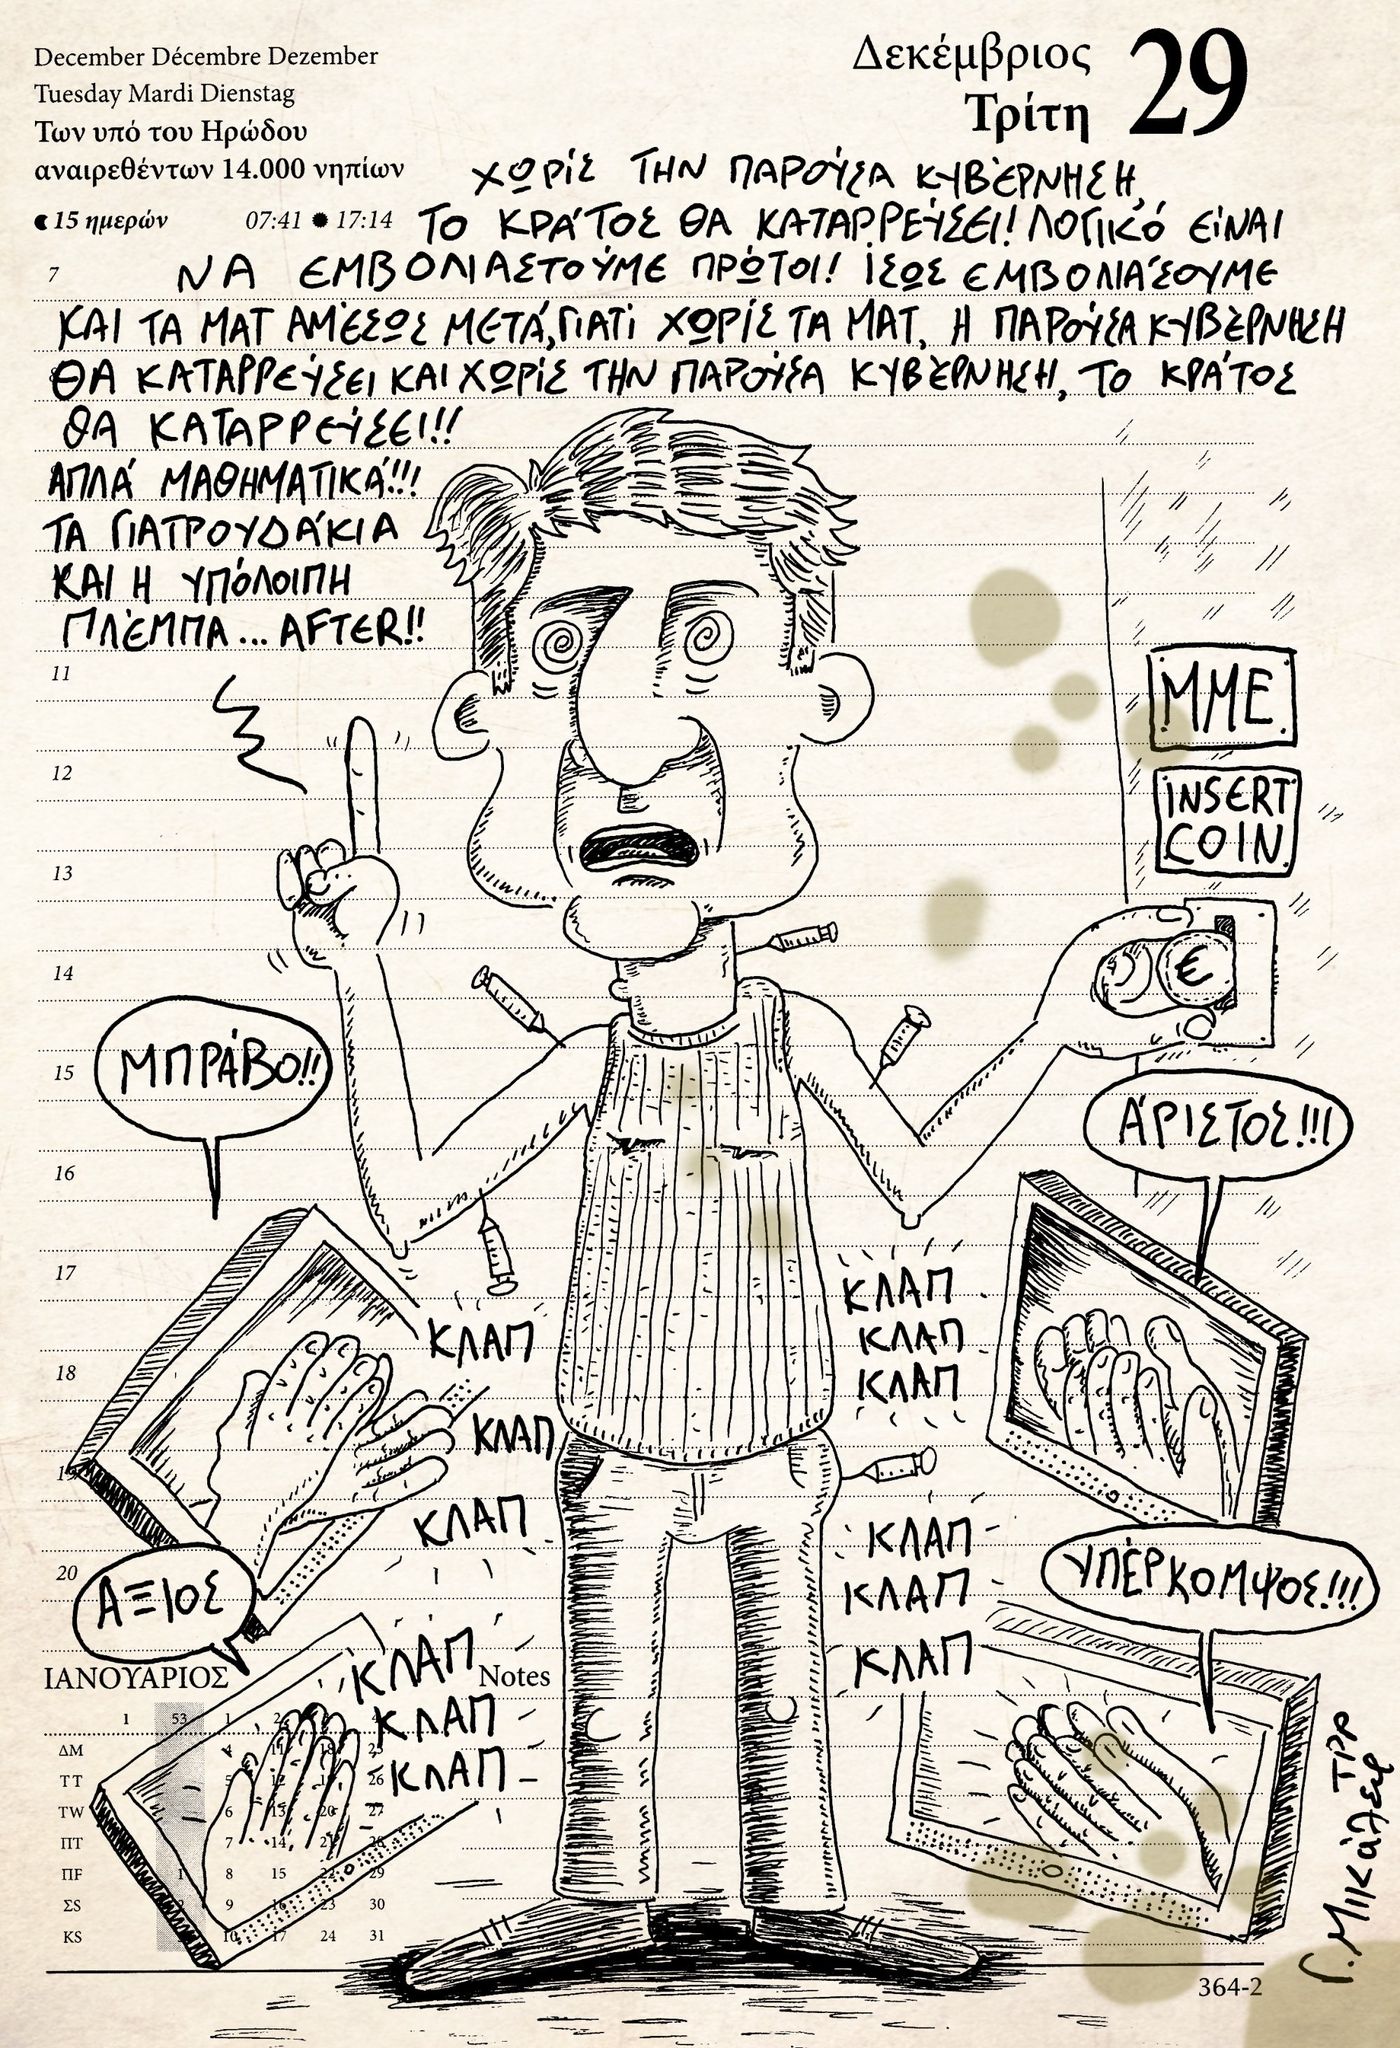 December Décembre Dezember
Tuesday Mardi Dienstag
Των υπό του Ηρώδου
αναιρεθέντων 14.000 νηπίων
15 ημερών 07:41 17:14
Δεκέμβριος
Τρίτη
29
ΧΩΡΙΣ ΤΗΝ ΠΑΡΟΎΣΑ ΚΥΒΈΡΝΗΣΗ,
ΤΟ ΚΡΆΤΟΣ ΘΑ ΚΑΤΑΡΡΕΎΣΕΙ! ΛΟΓΙΚΌ ΕΊΝΑΙ
ΝΑ ΕΜΒΟΛΙΑΣΤΟΎΜΕ ΠΡΏΤΟΙ! ΊΣΩΣ ΕΜΒΟΛΙΆΣΟΥΜΕ
ΚΑΙ ΤΑ ΜΑΤ ΑΜΈΣΩΣ ΜΕΤΆ, ΓΙΑΤΊ ΧΩΡΊΣ ΤΑ ΜΑΤ, Η ΠΑΡΟΎΣΑ ΚΥΒΈΡΝΗΣΗ
ΘΑ ΚΑΤΑΡΡΕΎΣΕΙ ΚΑΙ ΧΩΡΊΣ ΤΗΝ ΠΑΡΟΎΣΑ ΚΥΒΈΡΝΗΣΗ, ΤΟ ΚΡΆΤΟΣ
ΘΑ ΚΑΤΑΡΡΕΎΣΕΙ!!
ΑΠΛΆ ΜΑΘΗΜΑΤΙΚΆ!!!
ΤΑ ΓΙΑΤΡΟΥΔΆΚΙΑ
ΚΑΙ Η ΥΠΌΛΟΙΠΗ
ΠΛΈΜΠΑ... AFTER!!
7
11
12
13
14
15
16
17
18
19
20
ΜΜΕ
INSERT
COIN
€
ΜΠΡΆΒΟ!!
ΆΡΙΣΤΟΣ!!!
ΚΛΑΠ
ΚΛΑΠ
ΚΛΑΠ
ΚΛΑΠ
ΚΛΑΠ
ΚΛΑΠ
ΚΛΑΠ
ΚΛΑΠ
ΚΛΑΠ
ΑΞΙΟΣ
ΥΠΈΡΚΟΜΨΟΣ!!!
ΚΛΑΠ
ΚΛΑΠ
ΚΛΑΠ
ΙΑΝΟΥΑΡΙΟΣ
Notes
1 53 1
ΔΜ 4 11
ΤΤ 5 12 26
ΤW 6 13 20 27
ΠΤ 7 14 21 28
ΠF 1 8 15 22 29
ΣS 2 9 16 23 30
ΚS 10 17 24 31
364-2
Γ. ΜΙΚάλεφ
ΤΡΡ